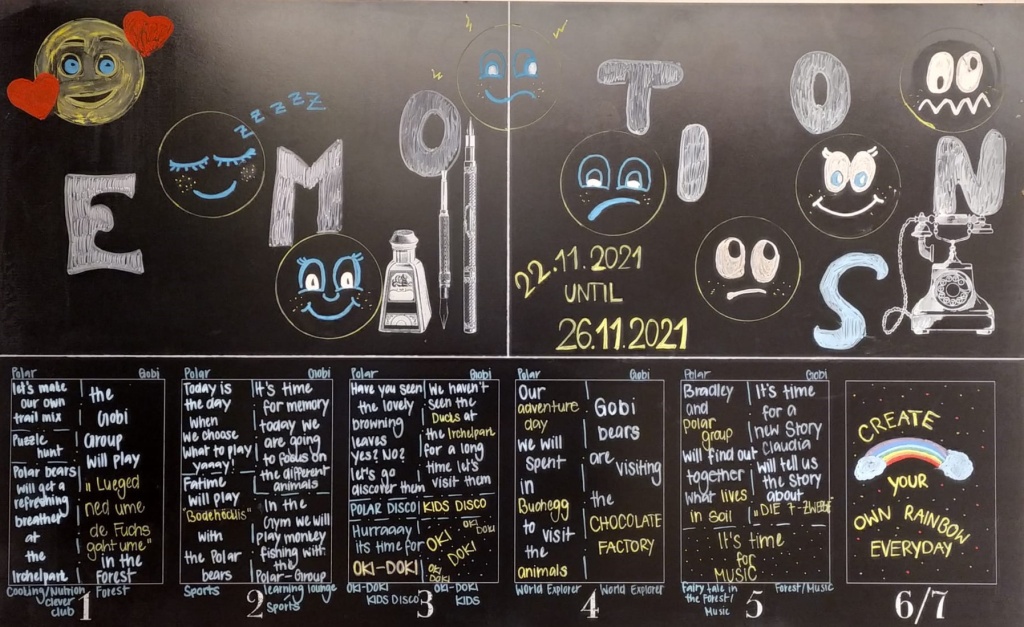 Z Z Z Z Z
E M O T I O N S
22.11.2021
UNTIL
26.11.2021
Polar
let's make
our own
trail mix
Puzzle
hunt
Polar bears
will get a
refreshing
breather
at
the
Irchelpark
Gobi
the
Gobi
Group
will play
"Lueged
ned ume
de Fuchs
goht ume"
in the
Forest
Cooking/Nutrion
clever
club
Forest
1
Polar
Today is
the day
When
we choose
what to play
yaaay!
Fatime
will play
"Bodehöcklis"
with
the Polar
bears
Gobi
It's time
for memory
today we
are going
to focus on
the different
animals
In the
Gym we will
play monkey
fishing with
the
Polar-Group
Sports
learning lounge
Sports
2
Polar
Have you seen
the lovely
browning
leaves
yes? No?
let's go
discover them
POLAR DISCO
Hurraaay
its time for
OKI-DOKI
Gobi
We haven't
seen the
Ducks at
the Irchelpark
for a long
time let's
visit them
KIDS DISCO
OKI
DOKI
OKI
DOKI
OKI
DOKI
OKI-DOKI
KIDS DISCO
OKI-DOKI
KIDS
3
Polar
Our
adventure
day
we will
spent
in
Buchegg
to visit
the
animals
Gobi
Gobi
bears
are visiting
the
CHOCOLATE
FACTORY
World Explorer
World Explorer
4
Polar
Bradley
and
polar
group
will find out
together
what lives
in soil
Gobi
It's time
for a
new Story
Claudia
will tell us
the Story
about
It's time
for
MUSIC
Fairy tale in
the Forest/
Music
Forest/Music
5
CREATE
YOUR
OWN RAINBOW
EVERYDAY
6/7